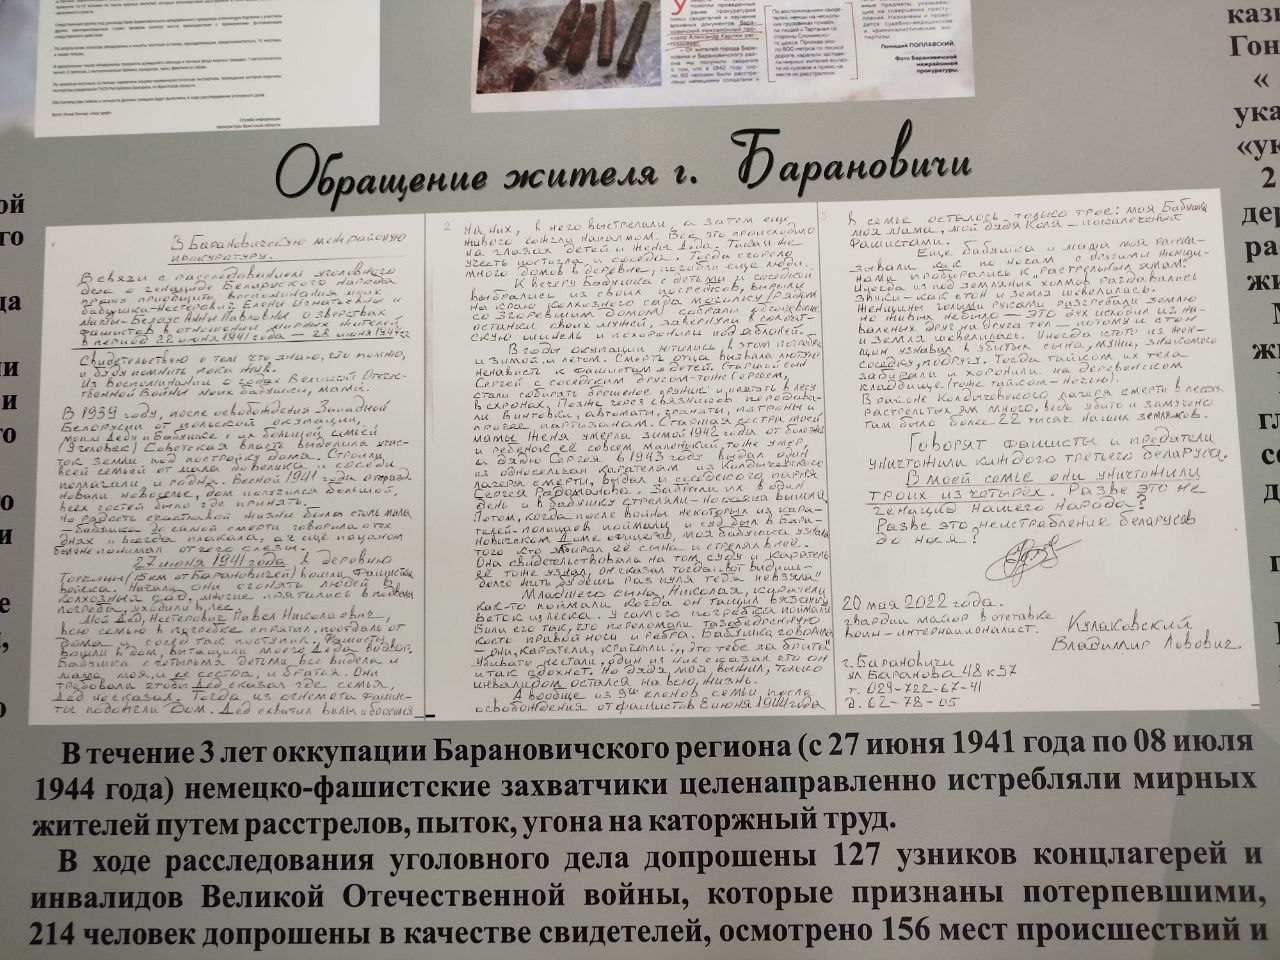 Геннадий ПОПЛАВСКИЙ.
Фото Барановичской
межрайонной
прокуратуры.
Обращение жителя г. Барановичи
В Барановическую межрайонную
прокуратуру.
В связи с расследованием уголовного
дела о геноциде Беларуского народа
прошу приобщить воспоминания моих
бабушки-Нестерович Елены Игнатьевны и
мамы-Белоус Анны Павловны о зверствах
фашистов в отношении мирных жителей
в период 22 июня 1941 года - 28 июня 1944 г.
Свидетельствую о том что знаю, что помню,
и буду помнить пока жив.
Из воспоминаний о годах Великой Отечес-
твенной Войны моих бабушки, мамы.
В 1939 году, после освобождения Западной
Белоруссии от польской окупации,
моим Деду и Бабушке с их большой семьей
(9 человек) Советская власть выделила учас-
ток земли под постройку дома. Строили
всей семьей от мала до велика и соседи
помагали и родня. Весной 1941 года отпразд-
новали новоселье, дом получился большой,
всех гостей было где принять.
Но радость счастливой жизни была столь мала
- бабушка до самой смерти говорила о тех
днях и всегда плакала, а я ещё пацаном
был не понимал от чего слезы.
27 июня 1941 года в деревню
Торчицы (15 км от Барановичей) вошли фашистские
войска. Начали они сгонять людей в
колхозный сад, многие прятались в подвалы
погреба, уходили в лес.
Мой Дед, Нестерович Павел Николаевич,
всю семью в погребке спрятал, поотдаль от
дома - сосед так поступил. Фашисты
вошли в дом, вытащили моего Деда во двор.
Бабушка с четырьмя детьми все видела и
мама моя, и её сестра, и братья. Они
требовали чтобы Дед сказал где семья,
Дед не сказал. Тогда из огнемета фашис-
ты подожгли Дом. Дед схватил вилы и бросился
2
на них, в него выстрелили, а затем еще
живого сожгли напалмом. Все это происходило
на глазах детей и жены Деда. Такая же
участь постигла и соседа. Тогда сгорело
много домов в деревне, погибли еще люди.
К вечеру Бабушка с детьми и соседкой
выбрались из своих погребков, вырыли
на краю колхозного сада могилку (рядом
со сгоревшим домом) собрали обгоревшие
останки своих мужей, завернули в солдат-
скую шинель и похоронили под яблоней.
В годы окупации ютились в этом погребке
и зимой, и летом. Смерть отца вызвала лютую
ненависть к фашистам у детей. Старший сын
Сергей с соседским другом-тоже Сергеем,
стали собирать брошеное оружие и прятать в лесу
в схронах. Позже через связников передава-
ли винтовки, автоматы, гранаты, патроны и
прочее партизанам. Старшая сестра моей
мамы Женя умерла зимой 1942 года от болезни
и ребенок её совсем маленький, тоже умер,
а дядю Сергея в 1943 году выдал один
из односельчан карателям из Колдычевского
лагеря смерти, выдал и соседского парня
Сергея Радоманова. Забрали их в один
день и в бабушку стреляли - но она выжила.
Потом, когда после войны некоторых из кара-
телей-полицаев поймали и суд был в Бара-
новичском Доме офицеров, моя бабушка узнала
того кто забирал её сына и стрелял в неё.
Она свидетельствовала на том суде и каратель
её тоже узнал, он сказал тогда: „вот видишь-
долго жить будешь раз пуля тебя не взяла".
Младшего сына, Николая, каратели
как-то поймали когда он тащил вязанку
веток из леска. У самого погребка поймали
Били его так, что переломали тазобедренную
кость правой ноги и ребра. Бабушка говорила
- они, каратели, кричали: „это тебе за брата"
убивать не стали, один из них сказал что он
и так здохнет. Но дядя мой выжил, только
инвалидом остался на всю жизнь.
А вообще из 9ти членов семьи, после
освобождения от фашистов 8 июня 1944 года
3
в семье осталось только трое: моя Бабушка
моя мама, мой дядя Коля - покалеченый
фашистами.
Еще бабушка и мама моя расска-
зывали как по ночам с другими женщи-
нами пробирались к „расстрельным ямам".
Иногда из под земляных холмов раздавались
звуки - как стон и земля шевелилась.
Женщины голыми руками разгребали землю
но живых не было - это дух исходил из на-
валеных друг на друга тел - потому и стон
и земля шевелилась. Иногда кто-то из жен-
щин узнавал убитых сына, мужа, знакомого
соседку, подругу. Тогда тайком их тела
забирали и хоронили на деревенском
кладбище (тоже тайком - ночью).
В районе Колдычевского лагеря смерти в лесах
расстрельных ям много, ведь убито и замучено
там было более 22 тысяч наших земляков.
Говорят фашисты и предатели
уничтожили каждого третьего беларуса.
В моей семье они уничтожили
троих из четырех. Разве это не
геноцид нашего народа?
Разве это не истребление беларусов
до ноля?
20 мая 2022 года.
гвардии майор в отставке
воин-интернационалист.
Кулаковский
Владимир Львович.
г. Барановичи
ул Баранова 48 к 57
т. 029-722-67-41
д. 62-78-05
В течение 3 лет оккупации Барановичского региона (с 27 июня 1941 года по 08 июля
1944 года) немецко-фашистские захватчики целенаправленно истребляли мирных
жителей путем расстрелов, пыток, угона на каторжный труд.
В ходе расследования уголовного дела допрошены 127 узников концлагерей и
инвалидов Великой Отечественной войны, которые признаны потерпевшими,
214 человек допрошены в качестве свидетелей, осмотрено 156 мест происшествий и